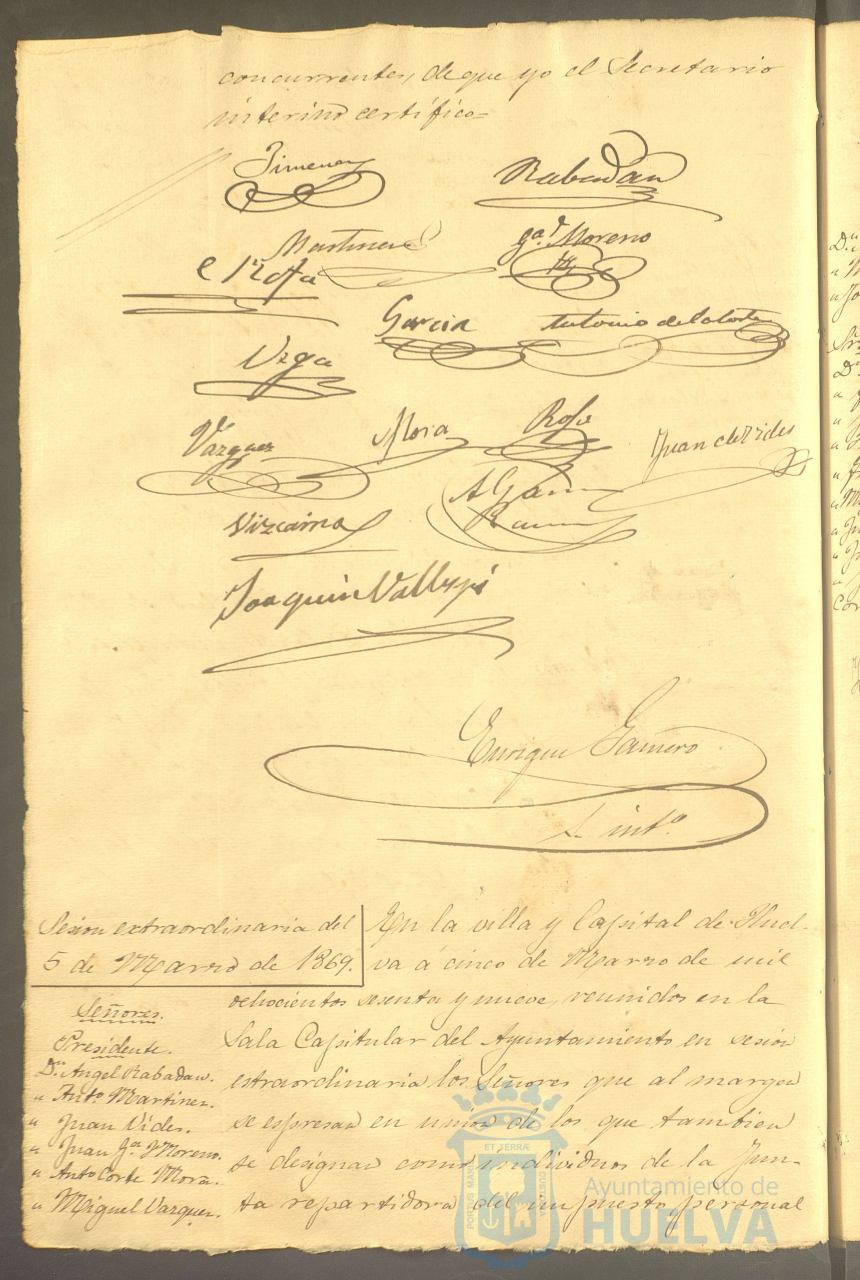 concurrentes, de que yo el Secretario
interino certifico=
Jimenez
Rabadan
Martinez
g.ª y Moreno
Garcia
Antonio de la Corte
Vega
Vazquez
Mora
Juan de Vides
Vizcaino
A Garcia
Ramirez
Joaquin Vallejo
Enrique Gamero
S. int.º
Sesion extraordinaria del
5 de Marzo de 1869.
Señores.
Presidente.
D.n Angel Rabadan.
" Ant.º Martinez.
" Juan Vides.
" Juan G.ª y Moreno.
" Ant.º Corte Mora.
" Miguel Vazquez.
En la villa y Capital de Huel-
va á cinco de Marzo de mil
ochocientos sesenta y nueve, reunidos en la
Sala Capitular del Ayuntamiento en sesion
estraordinaria los Señores que al margen
se espresan en union de los que tambien
se designan como individuos de la Jun-
ta repartidora del impuesto personal
ET TERRÆ
PORTUS MARIS
CUSTODIA
Ayuntamiento de
HUELVA